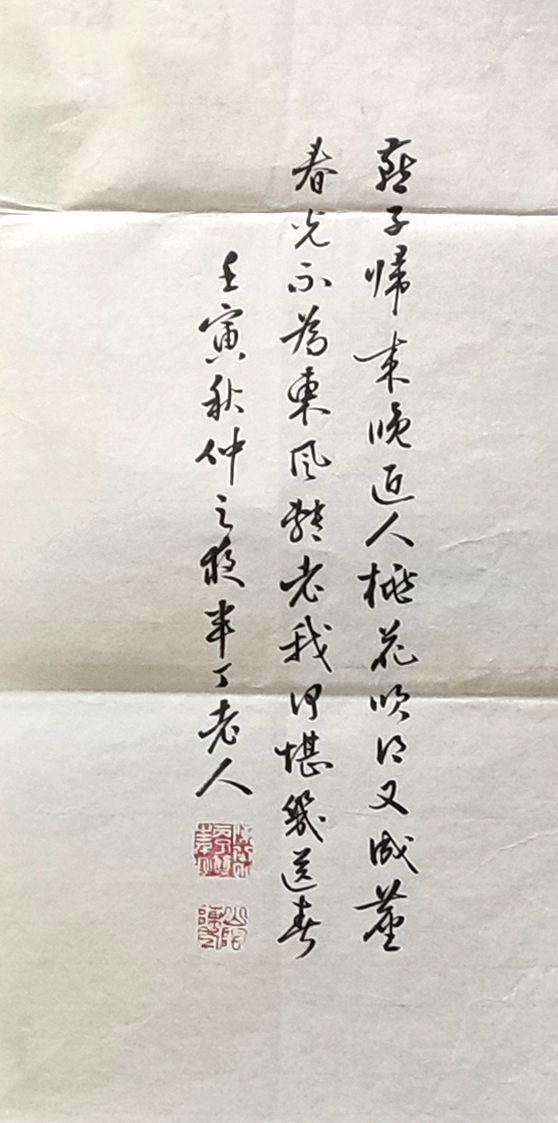 燕子归来晚近人桃花吹得又成尘
春光不为东风转老我何堪几送春
壬寅秋仲之夜半丁老人